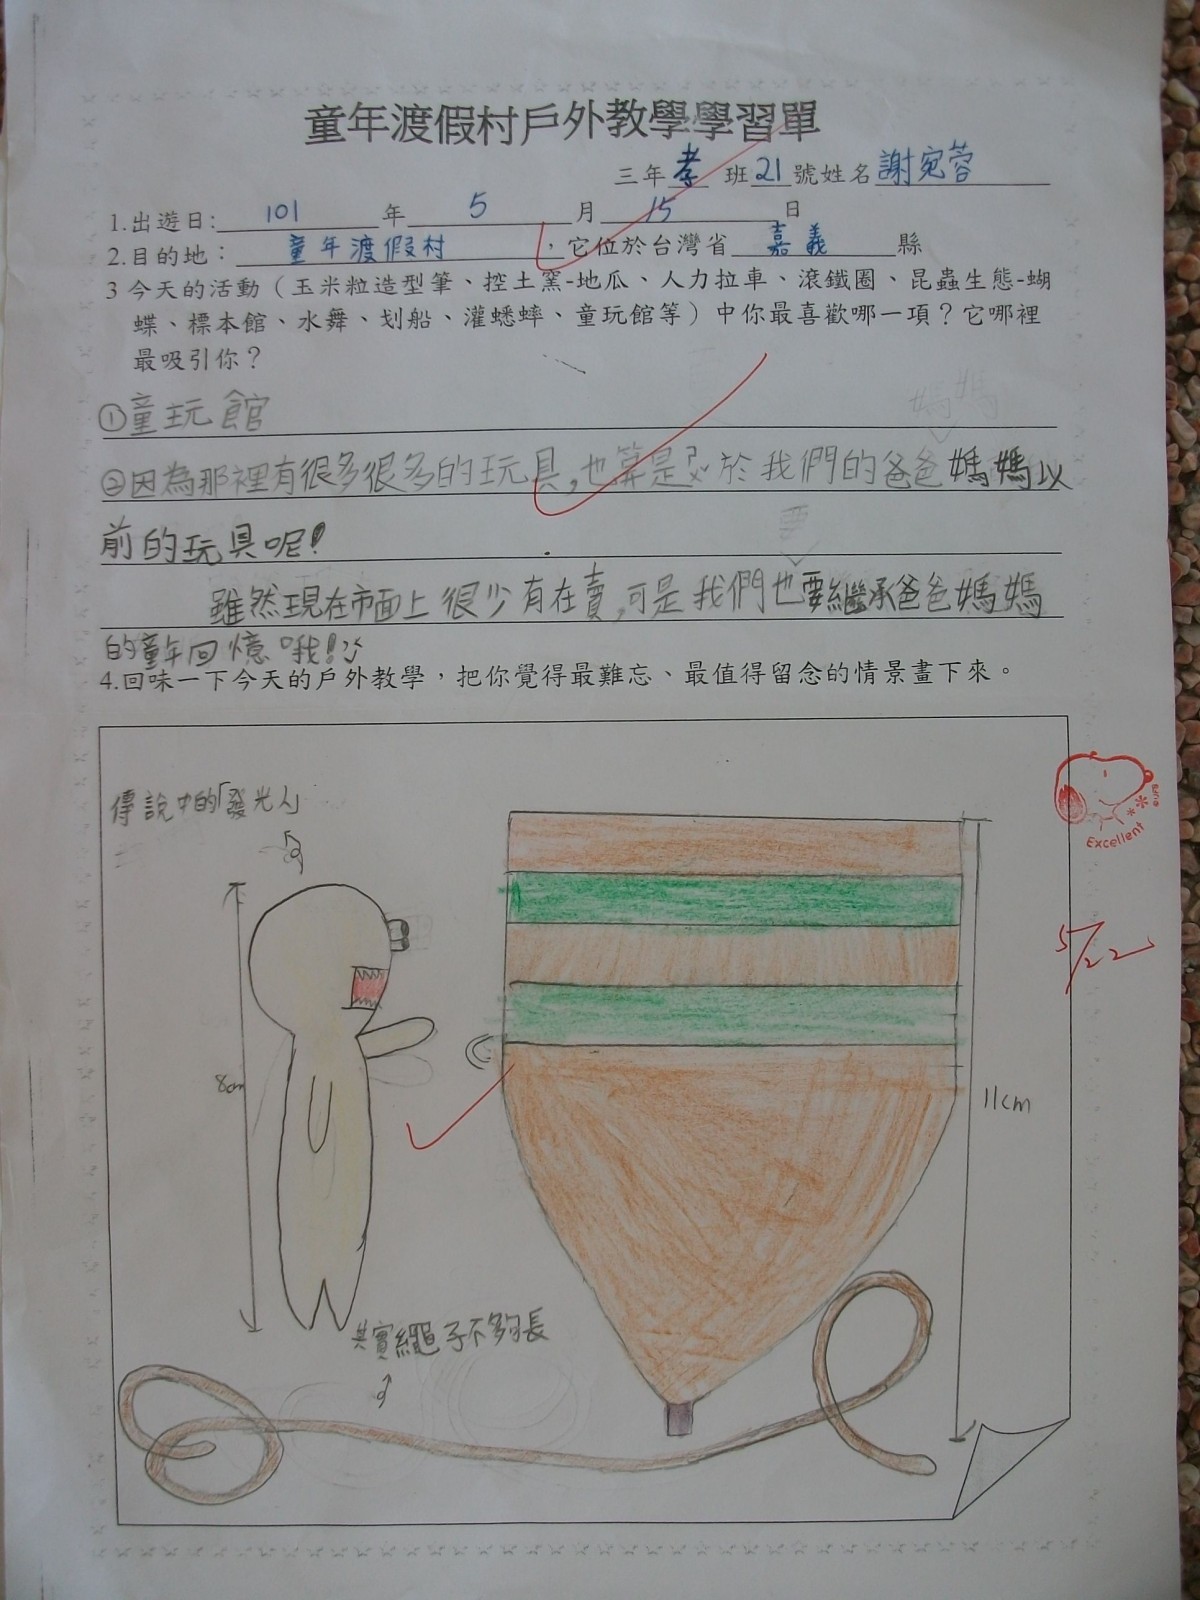 童年渡假村戶外教學學習單
三年孝班21號姓名謝宛蓉
1.出遊日:101年5月15日
2.目的地：童年渡假村，它位於台灣省嘉義縣
3 今天的活動（玉米粒造型筆、控土窯-地瓜、人力拉車、滾鐵圈、昆蟲生態-蝴
蝶、標本館、水舞、划船、灌蟋蟀、童玩館等）中你最喜歡哪一項？它哪裡
最吸引你？
①童玩館
②因為那裡有很多很多的玩具,也算是於我們的爸爸媽媽以
前的玩具呢!
雖然現在市面上很少有在賣,可是我們也要繼承爸爸媽媽
的童年回憶哦!
4.回味一下今天的戶外教學，把你覺得最難忘、最值得留念的情景畫下來。
傳說中的「發光人」
Excellent
5/22
8cm
11cm
其實繩子不夠長